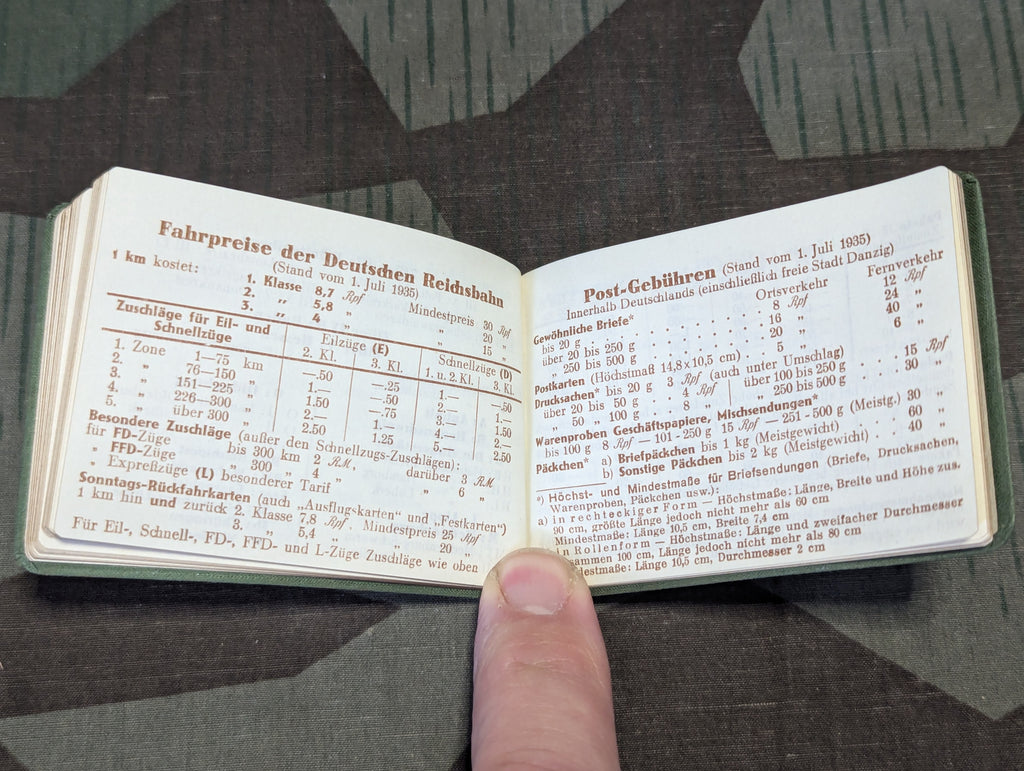 Fahrpreise der Deutschen Reichsbahn
(Stand vom 1. Juli 1935)
1 km kostet: 1. Klasse 8,7 Rpf Mindestpreis 30 Rpf
2. „ 5,8 „ „ 20 „
3. „ 4 „ „ 15 „
Zuschläge für Eil- und Schnellzüge Eilzüge (E) Schnellzüge (D)
2. Kl. 3. Kl. 1. u. 2. Kl. 3. Kl.
1. Zone 1—75 km —.50 —.25 1.— —.50
2. „ 76—150 „ 1.— —.50 2.— 1.—
3. „ 151—225 „ 1.50 —.75 3.— 1.50
4. „ 226—300 „ 2.— 1.— 4.— 2.—
5. „ über 300 „ 2.50 1.25 5.— 2.50
Besondere Zuschläge (außer den Schnellzugs-Zuschlägen):
für FD-Züge bis 300 km 2 RM, darüber 3 RM.
„ FFD-Züge „ 300 „ 4 „ „ 6 „
„ Expreßzüge (L) besonderer Tarif
Sonntags-Rückfahrkarten (auch „Ausflugskarten" und „Festkarten")
1 km hin und zurück 2. Klasse 7,8 Rpf, Mindestpreis 25 Rpf
3. „ 5,4 „ „ 20 „
Für Eil-, Schnell-, FD-, FFD- und L-Züge Zuschläge wie oben
Post-Gebühren (Stand vom 1. Juli 1935)
Innerhalb Deutschlands (einschließlich freie Stadt Danzig)
Ortsverkehr Fernverkehr
Gewöhnliche Briefe*
bis 20 g . . . 8 Rpf 12 Rpf
über 20 bis 250 g . . . 16 „ 24 „
„ 250 bis 500 g . . . 20 „ 40 „
Postkarten (Höchstmaß 14,8x10,5 cm) . . 5 „ 6 „
Drucksachen* bis 20 g 3 Rpf (auch unter Umschlag)
über 20 bis 50 g . . 4 Rpf über 100 bis 250 g . . . 15 Rpf
„ 50 „ 100 g . . 8 „ „ 250 bis 500 g . . . 30 „
Warenproben Geschäftspapiere, Mischsendungen*
bis 100 g 8 Rpf — 101-250 g 15 Rpf — 251-500 g (Meistg.) 30 „
Päckchen* a) Briefpäckchen bis 1 kg (Meistgewicht) . . 60 „
b) Sonstige Päckchen bis 2 kg (Meistgewicht) . . 40 „
*) Höchst- und Mindestmaße für Briefsendungen (Briefe, Drucksachen,
Warenproben, Päckchen usw.):
a) in rechteckiger Form — Höchstmaße: Länge, Breite und Höhe zus.
90 cm, größte Länge jedoch nicht mehr als 60 cm
Mindestmaße: Länge 10,5 cm, Breite 7,4 cm
in Rollenform — Höchstmaße: Länge und zweifacher Durchmesser
sammen 100 cm, Länge jedoch nicht mehr als 80 cm
Länge 10,5 cm, Durchmesser 2 cm